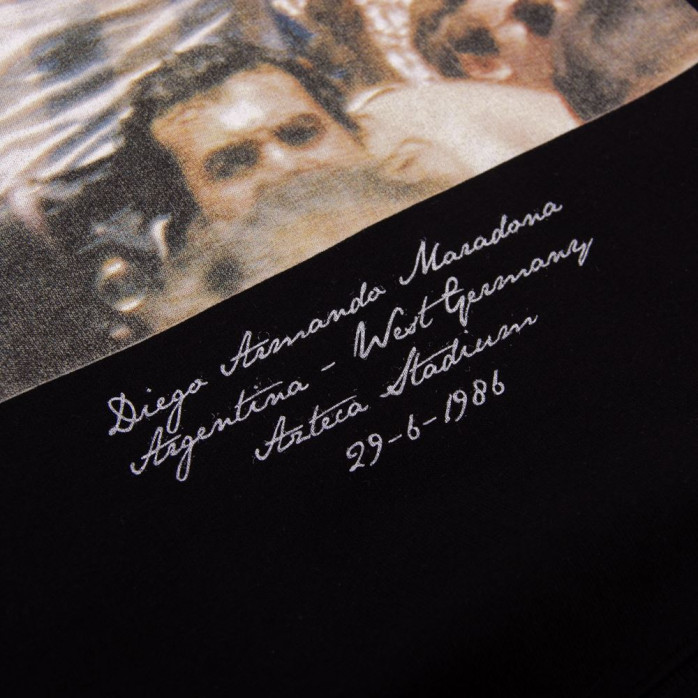 Diego Armando Maradona
Argentina - West Germany
Azteca Stadium
29-6-1986